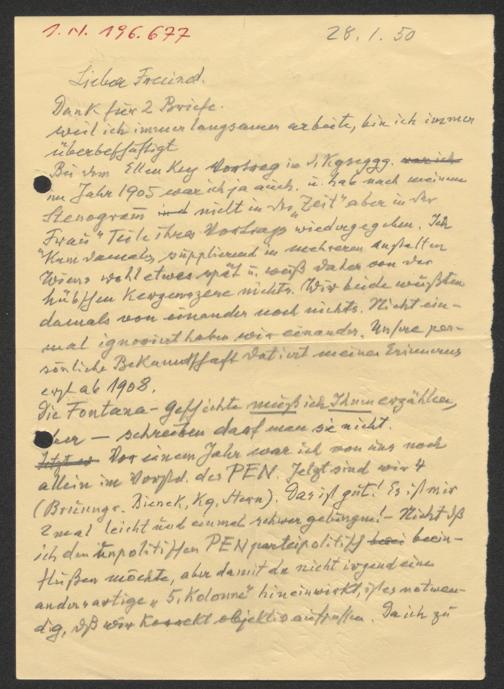 I. N. 196.677
28.1.50
Lieber Freund.
Dank für 2 Briefe.
weil ich immer langsamer arbeite, bin ich immer
überbeschäftigt
Bei dem Ellen Key Vortrag in d.
im Jahr 1905 war ich ja auch. u. hab nach meinem
Stenogram nicht in der „Zeit" aber in der
Frau" Teile ihres Vortrags wiedergegeben. Ich
kam damals, supplierend in mehreren Anstalten
Wiens wohl etwas spät u. weiß daher von der
hübschen Kerzenszene nichts. Wir beide wußten
damals von einander noch nichts. Nicht ein-
mal ignoriert haben wir einander. Unsre per-
sönliche Bekanntschaft datiert meines Erinnerns
erst ab 1908.
die Fontana-Geschichte muß ich Ihnen erzählen,
aber — schreiben darf man sie nicht.
Vor einem Jahr war ich von uns noch
allein im Vorstd. des PEN. Jetzt sind wir 4
(Brünngr. Bienek, Kg, Stern). Das ist gut! Es ist mir
2 mal leicht und einmal schwer gelungen! – Nicht dß
ich den unpolitischen PEN parteipolitisch beein-
flußen möchte, aber damit da nicht irgend eine
andersartige „5. Kolonne" hineinwirkt, ist es notwen-
dig, dß wir korrekt objektiv aufpassen. Da ich zu